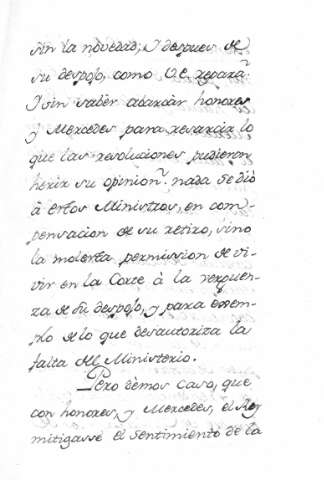 sin la novedad; y despues de
su despojo, como V.E. repara.
Y sin saber abarcar honores
y Mercedes para resarcir lo
que las resoluciones pudieron
herir su opinion. nada se diò
à estos Ministros, en com-
pensacion de su retiro, sino
la molesta permission de vi-
vir en la Corte à la verguen-
za de su despojo, y para exem-
plo de lo que desautoriza la
falta del Ministerio.
Pero dèmos caso, que
con honores, y Mercedes, el Rey
mitigasse el sentimiento de la